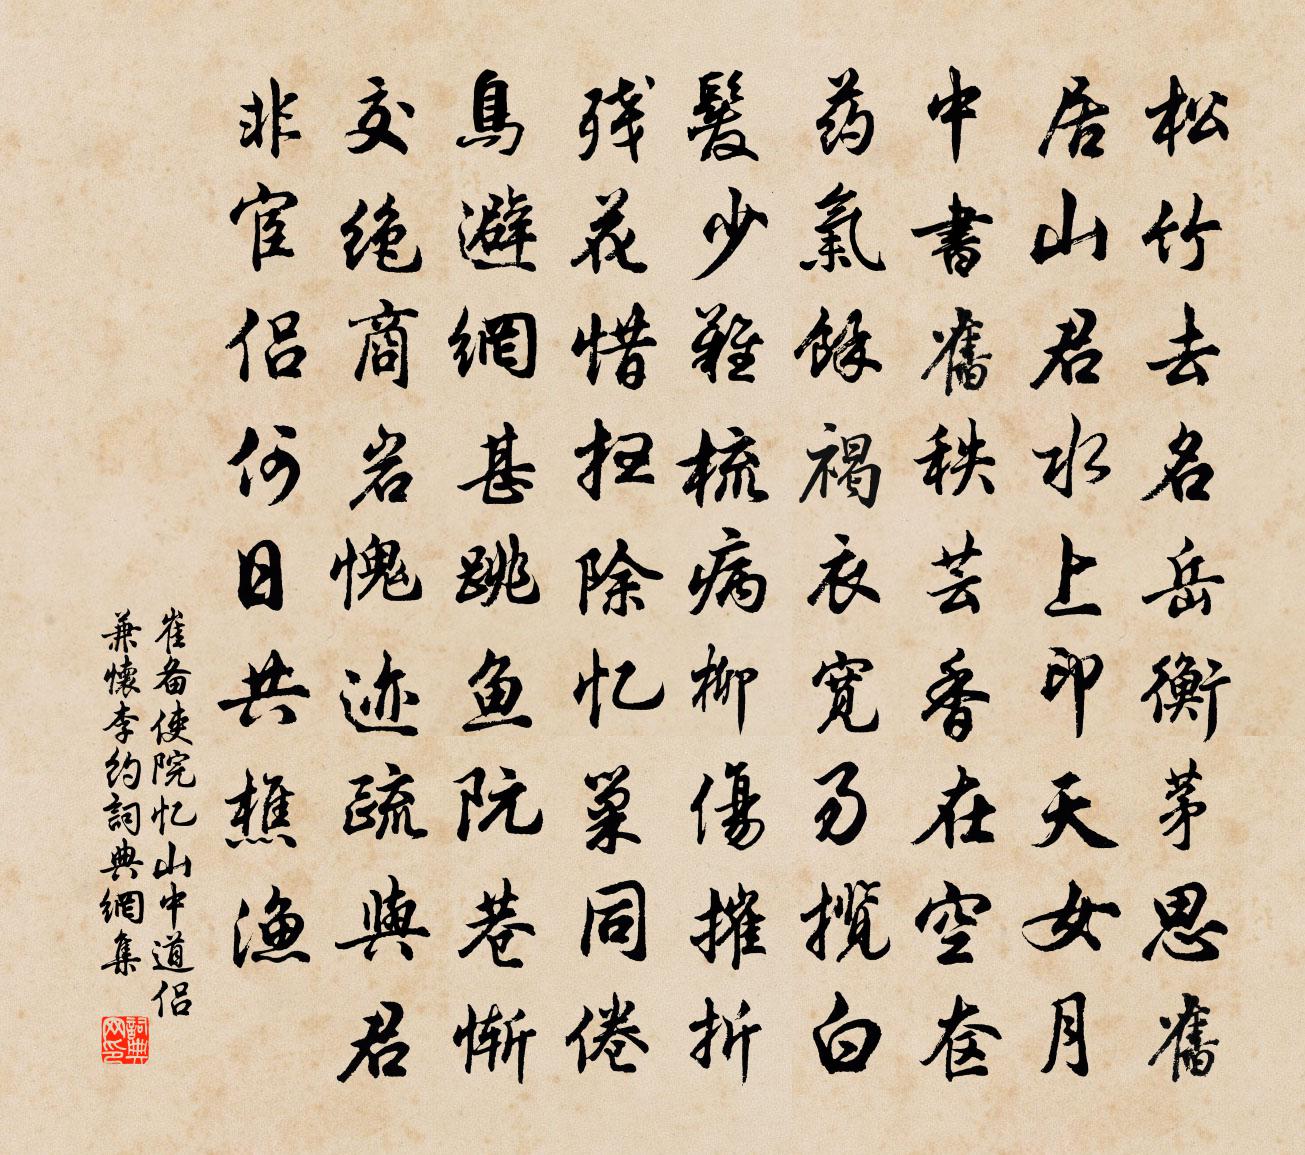 松竹去名岳衡茅思舊
居山君水上印天女月
中書舊秩芸香在空奁
药氣餘褐衣寬易攬白
髮少難梳病柳傷摧折
残花惜扫除忆巢同倦
鳥避網甚跳鱼阮巷慚
交绝商岩愧迹疏與君
非宦侣何日共樵渔
崔备使院忆山中道侣
兼懷李约詞典網集
詞典
网印